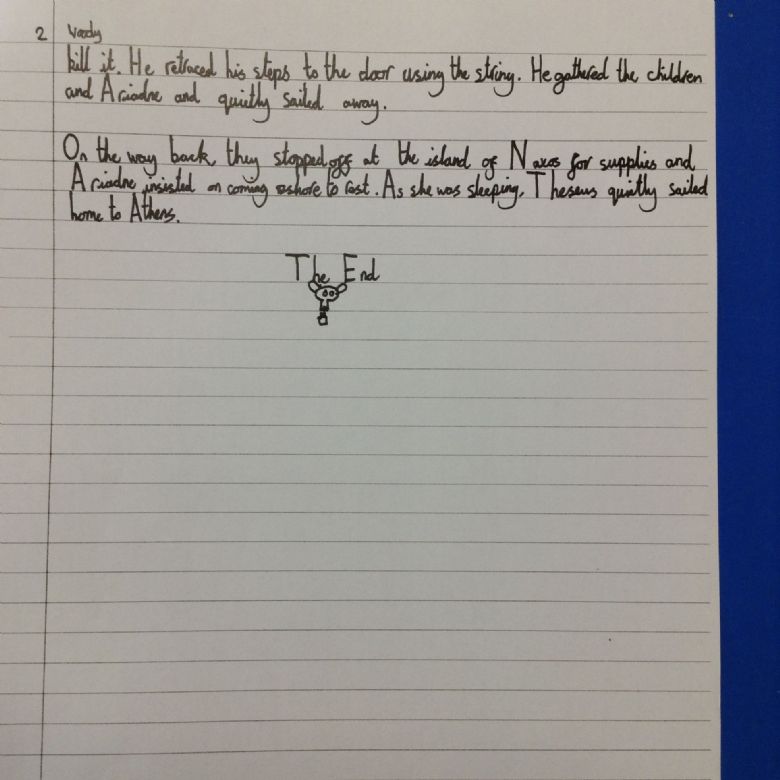 2 Vardy
kill it. He retraced his steps to the door using the string. He gathered the children
and Ariadne and quietly sailed away.
On the way back, they stopped off at the island of Naxos for supplies and
Ariadne insisted on coming ashore to rest. As she was sleeping, Theseus quietly sailed
home to Athens.
The End